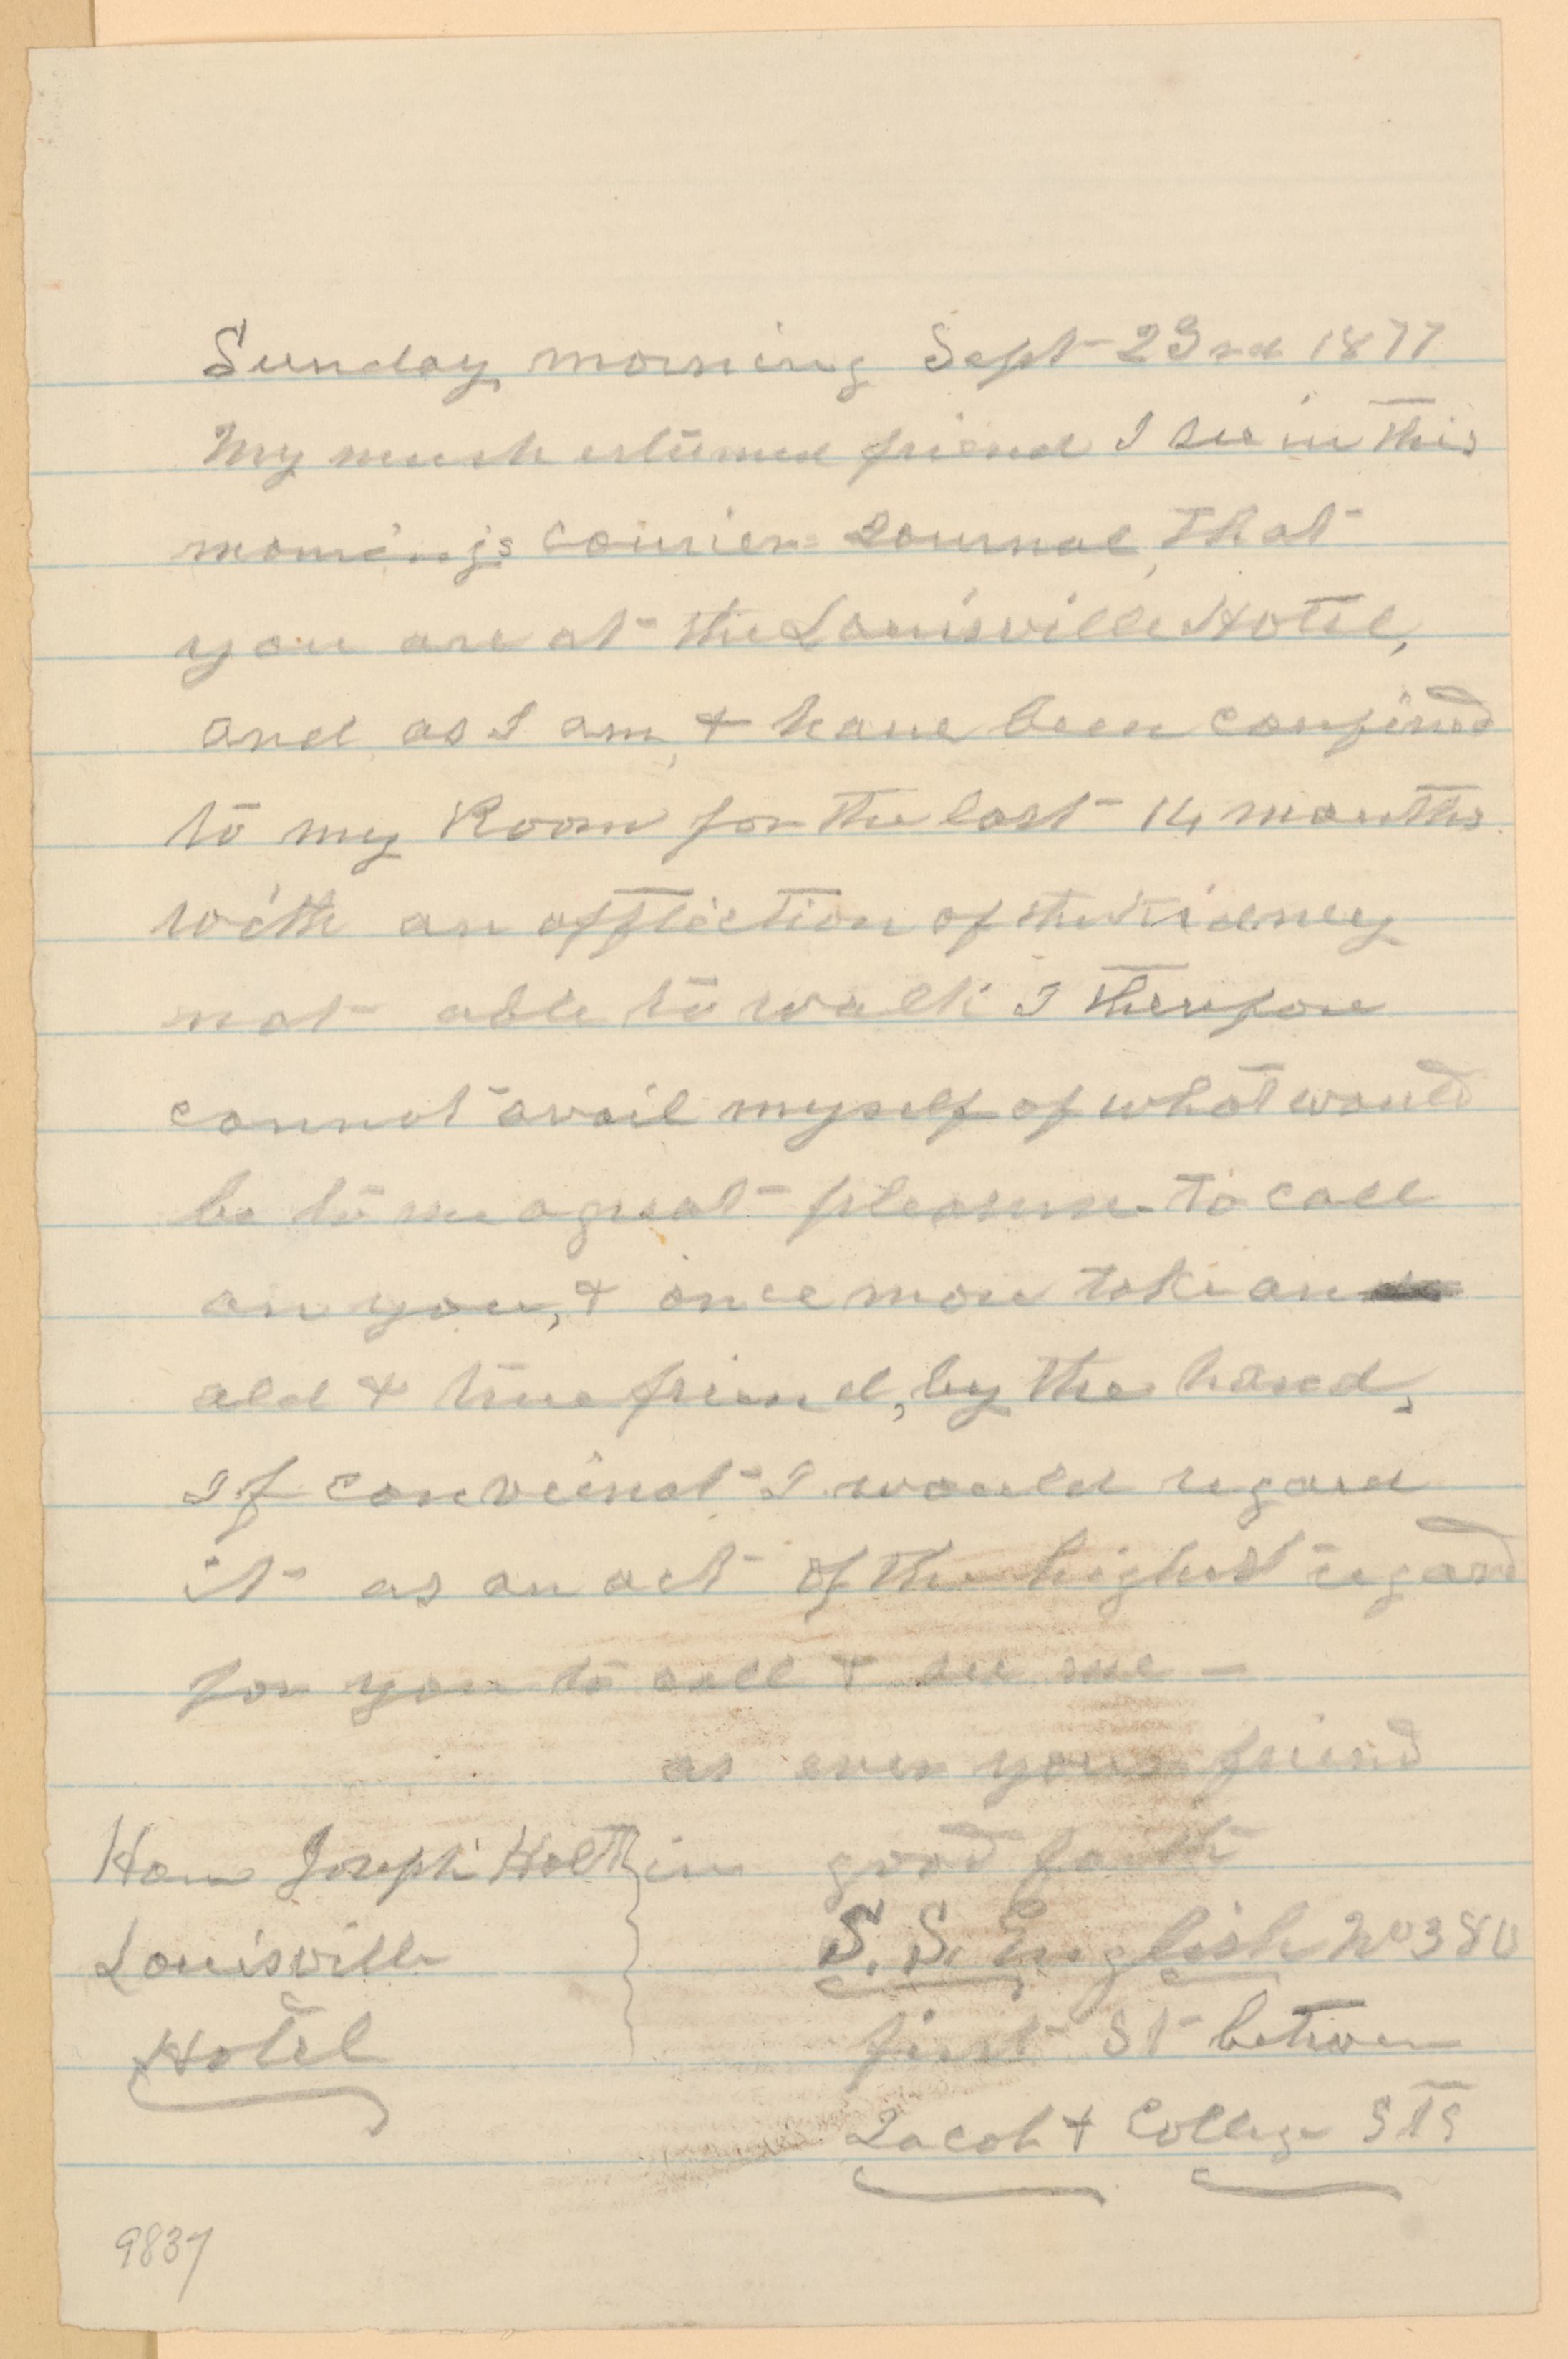 Sunday morning Sept 23rd 1877
My much esteemed friend I see in this
morning's Courier=Journal, that
you are at the Louisville Hotel,
and as I am, & have been confined
to my Room for the last 14 months
with an affliction of the Kidney
not able to walk I therefore
cannot avail myself of what would
be to me a great pleasure to call
on you, & once more take an
old & true friend, by the hand,
If conveinat I would regard
it as an act of the highest regard
for you to call & see me —
as ever your friend
in good faith
Hon Joseph Holt
Louisville
Hotel
S. S. English No 380
first St between
Jacob & College STS
9837